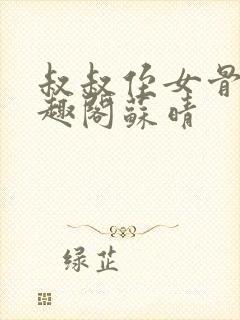 叔叔侄女骨
趣阁蘇晴
绿芷